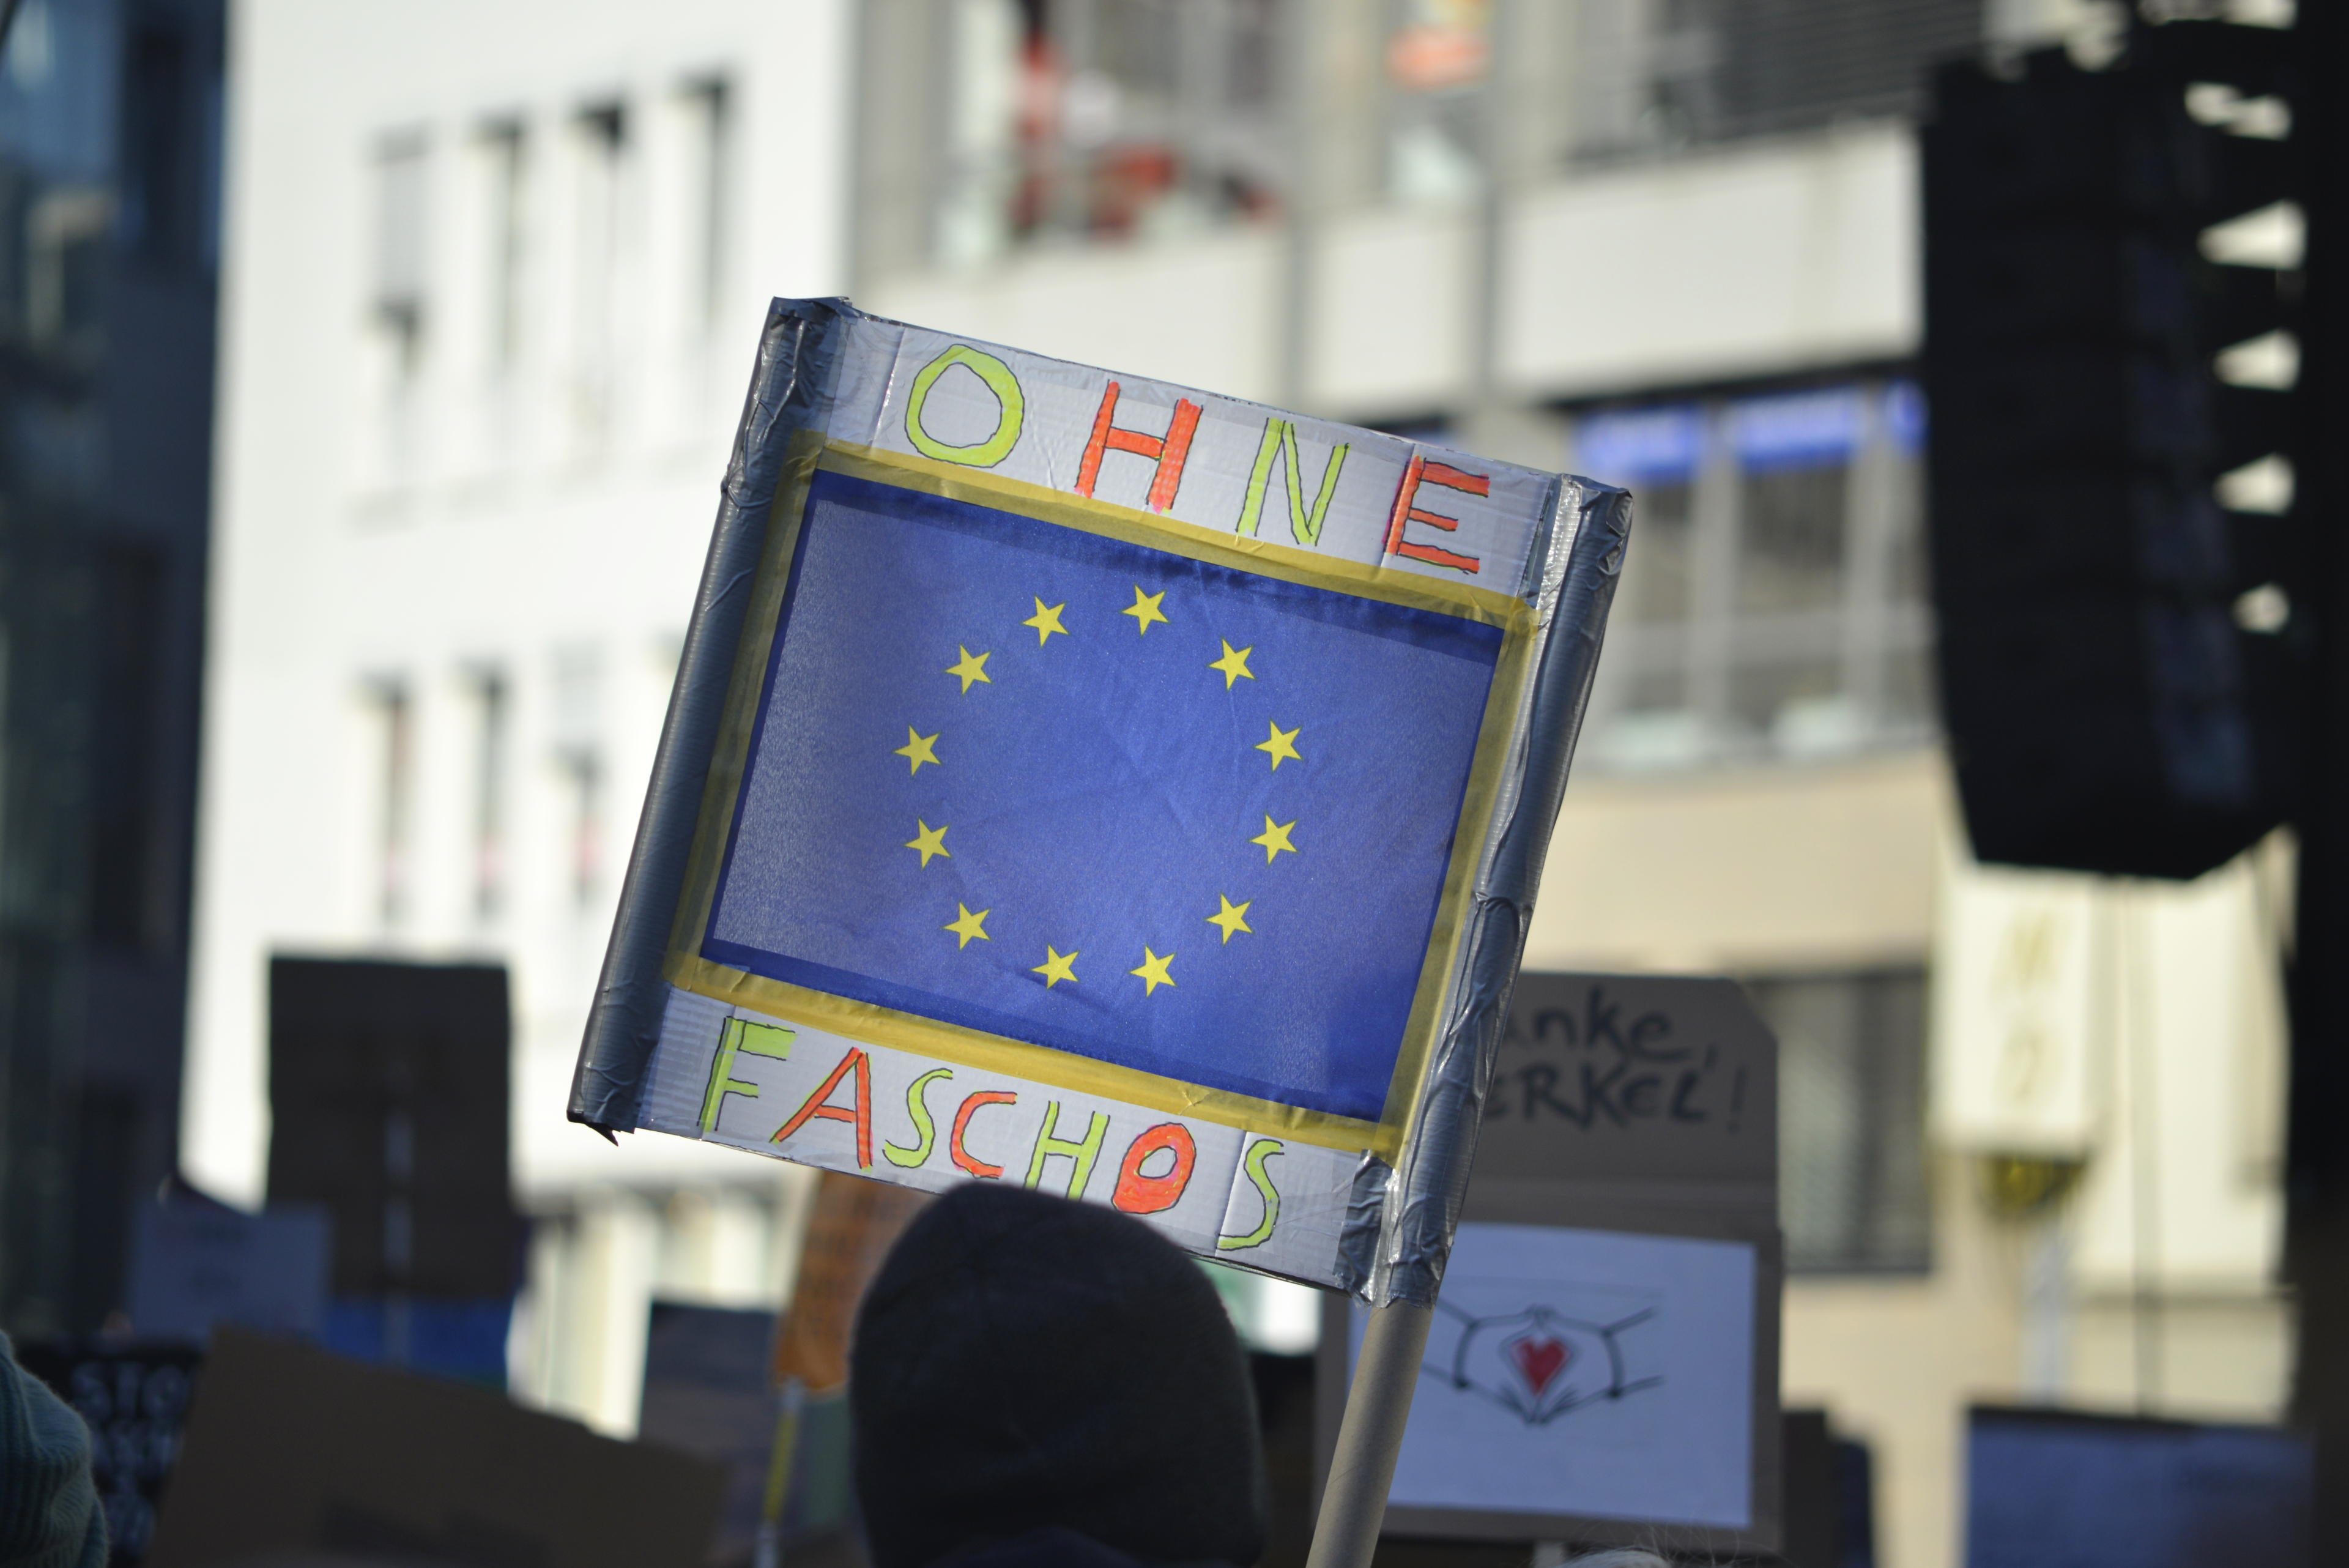 OHNE
FASCHOS
anke
ERKEL!